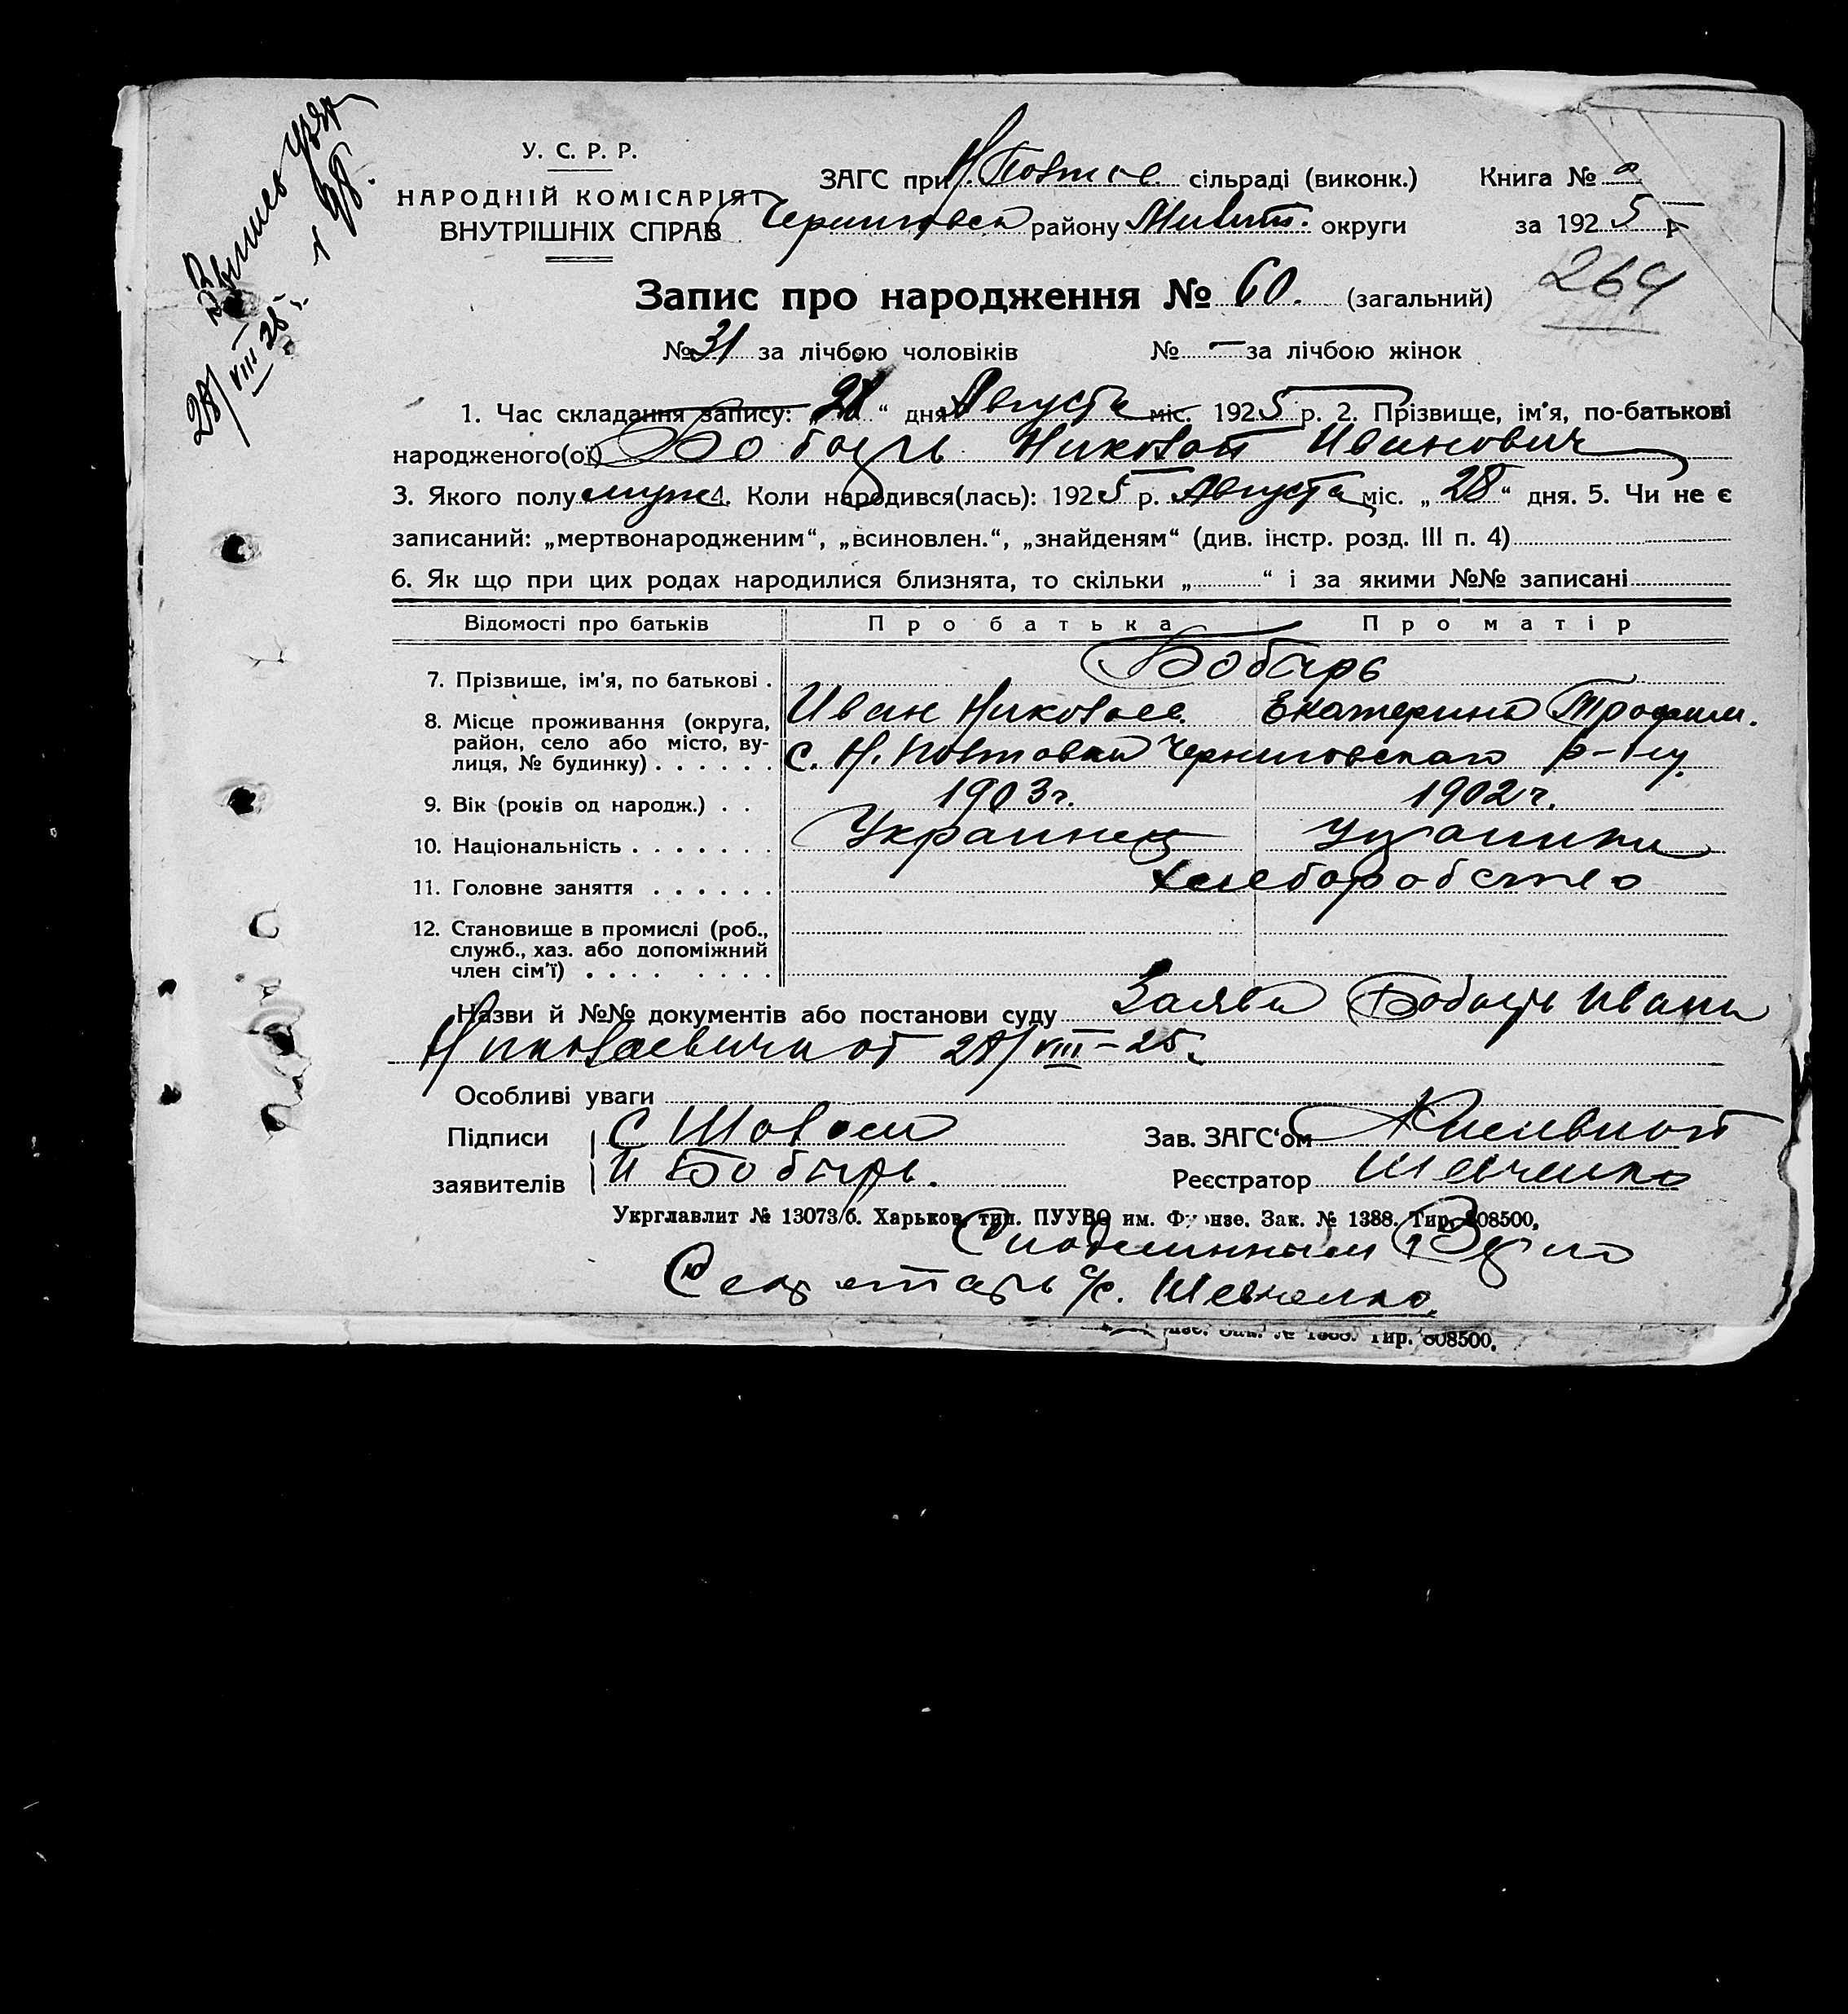 У. С. Р. Р.
НАРОДНІЙ КОМІСАРІЯТ
ВНУТРІШНІХ СПРАВ
ЗАГС при Н. Полтавс. сільраді (виконк.) Книга №
Черниговск району Мелит. округи за 1925 р
Запис про народження № 60. (загальний) 264
№ 31 за лічбою чоловіків № — за лічбою жінок
28/VIII 25 г.
1. Час складання запису: „28“ дня Августа міс. 1925 р. 2. Прізвище, ім'я, по-батькові
народженого(ої) Бобырь Николай Иванович
3. Якого полу муж 4. Коли народився(лась): 1925 р. Августа міс. „28“ дня. 5. Чи не є
записаний: „мертвонародженим“, „всиновлен.“, „знайденям“ (див. інстр. розд. III п. 4)
6. Як що при цих родах народилися близнята, то скільки „ “ і за якими №№ записані
Відомості про батьків Про батька Про матір
7. Прізвище, ім'я, по батькові . Бобырь
Иван Николаев. Екатерина Трофим.
8. Місце проживання (округа, район, село або місто, вулиця, № будинку) . . . . . . с. Н. Полтавка Черниговского р-ну
9. Вік (років од народж.) . . 1903 г. 1902 г.
10. Національність . . . . . . . Украинец Украинка
11. Головне заняття . . . . . . Хлеборобство
12. Становище в промислі (роб.,
служб., хаз. або допоміжний
член сім'ї) . . . . . . . . .
Назви й №№ документів або постанови суду Заява Бобырь Ивана
Николаевича от 28/VIII–25 г.
Особливі уваги
Підписи С Зав. ЗАГС'ом
заявителів И Бобырь. Реєстратор Шевченко
Укрглавлит № 13073/б. Харьков, тип. ПУУВО им. Фрунзе. Зак. № 1388. Тир. 808500.
С подлинным верно
Секретарь с/с. Шевченко
Тир. 808500.